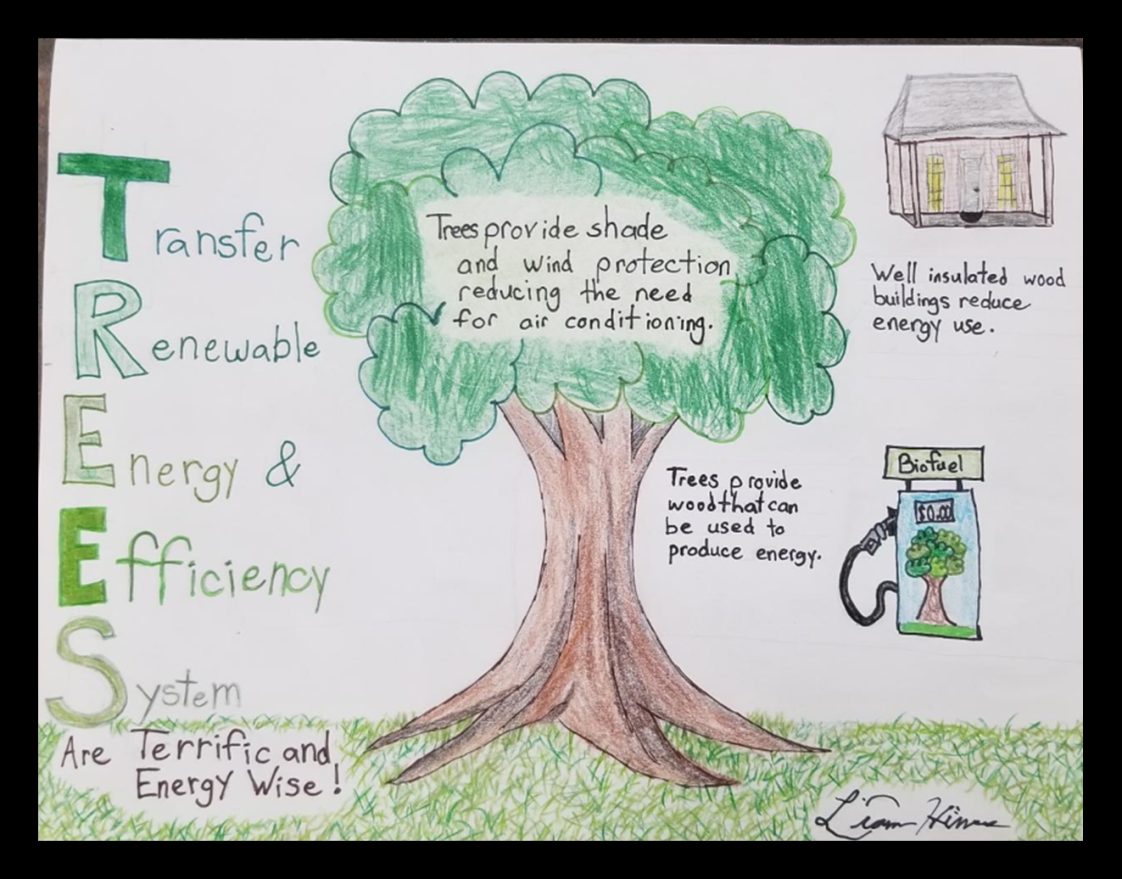 Transfer
Renewable
Energy &
Efficiency
System
Are Terrific and
Energy Wise!
Trees provide shade
and wind protection
reducing the need
for air conditioning.
Well insulated wood
buildings reduce
energy use.
Trees provide
wood that can
be used to
produce energy.
Biofuel
$0.00
Liam